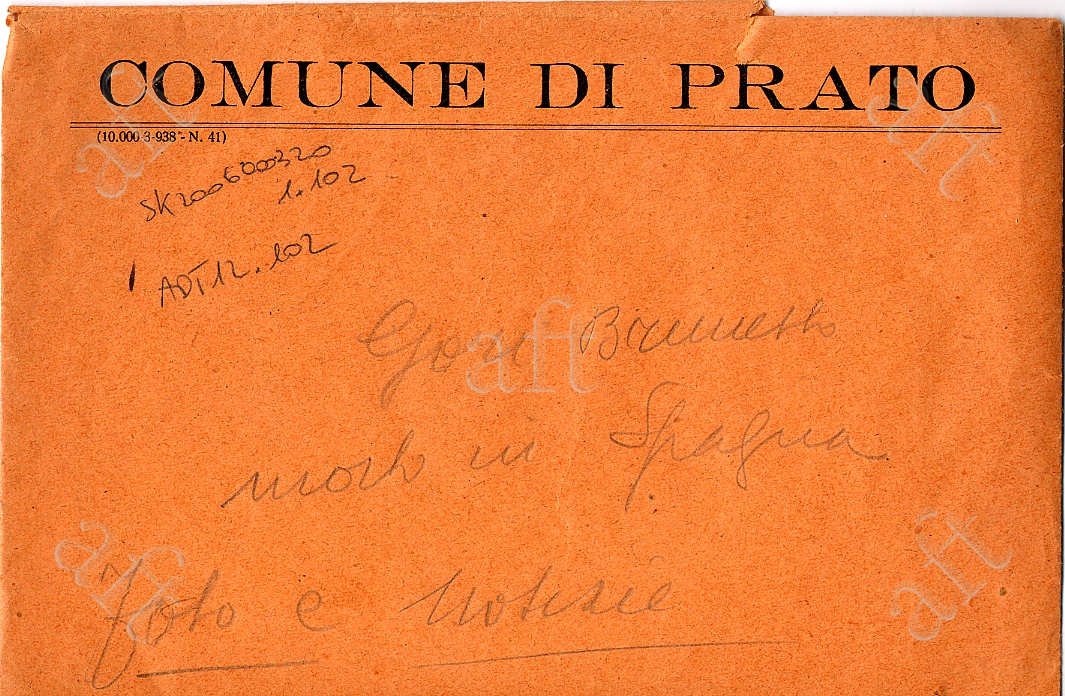 COMUNE DI PRATO
(10.000-3-938 - N. 41)
SK200600320
1.102
ADT12.102
Gori Brunetto
morto in Spagna
Foto e Notizie
aft
aft
aft
aft
aft